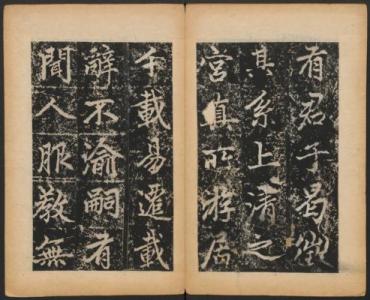 有君子曷徵
其系上清之
宮真所游居
千載易遷載
辭不渝嗣有
聞人服教無